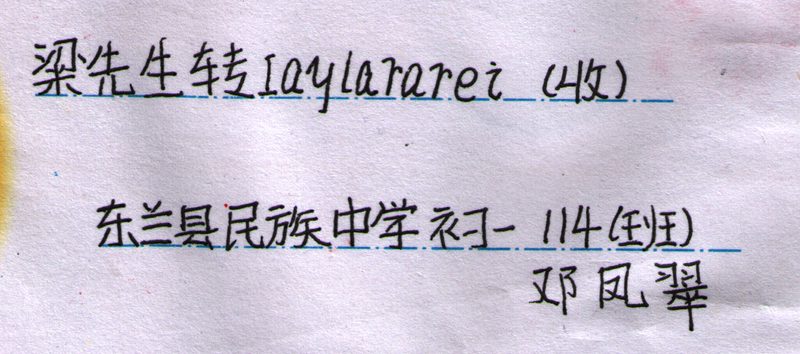 梁先生转Iaylararei (收)
东兰县民族中学初一114(班)
邓凤翠